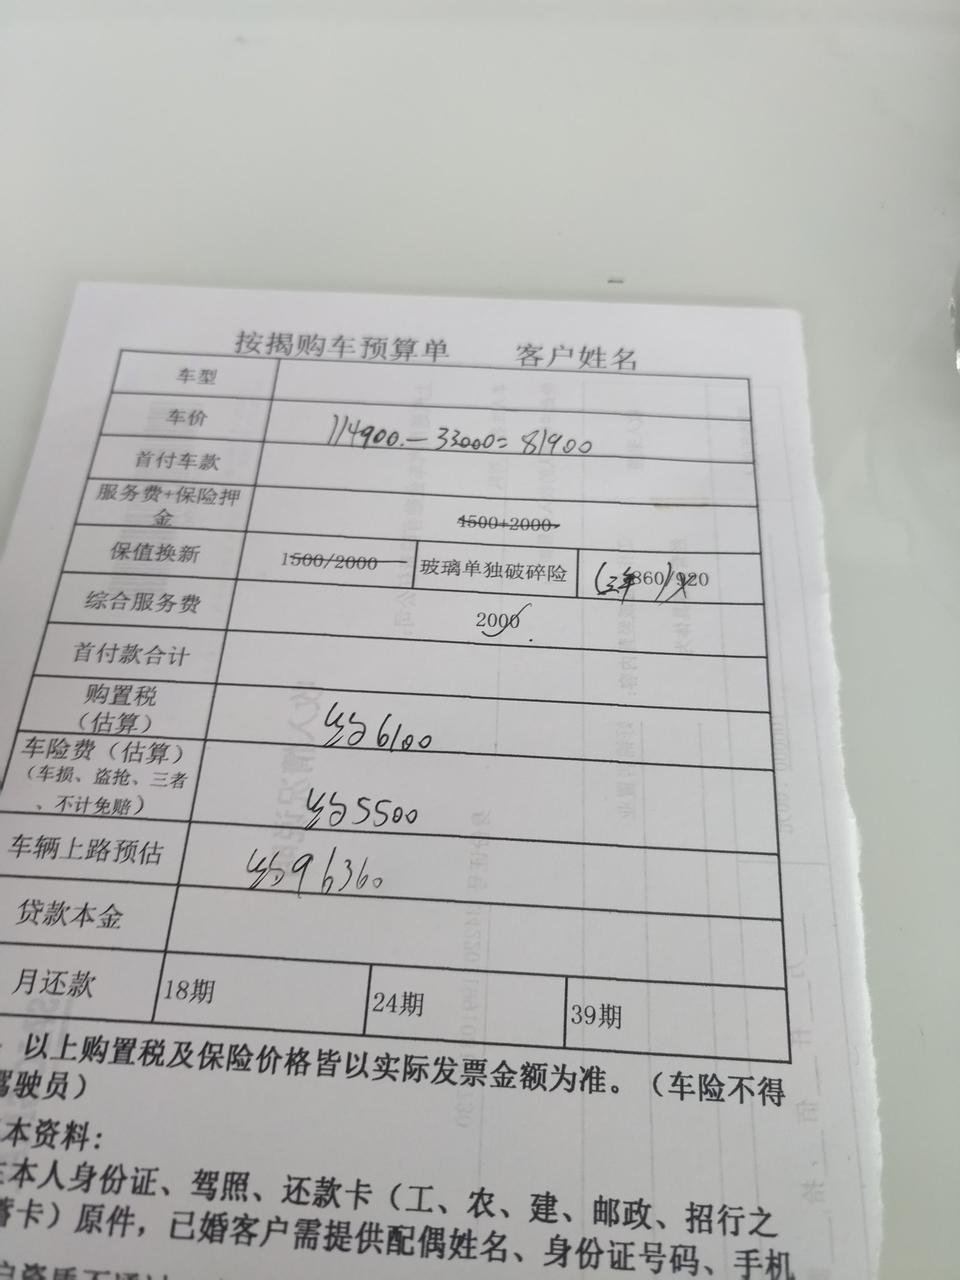 按揭购车预算单 客户姓名
车型
车价 114900.-33000=81900
首付车款
服务费+保险押
金 4500+2000
保值换新 1500/2000 玻璃单独破碎险 (三年860)/920
综合服务费 2000
首付款合计
购置税
（估算） 约6100
车险费（估算）
（车损、盗抢、三者
、不计免赔） 约5500
车辆上路预估 约96360
贷款本金
月还款 18期 24期 39期
以上购置税及保险价格皆以实际发票金额为准。（车险不得
驾驶员）
本资料：
本人身份证、驾照、还款卡（工、农、建、邮政、招行之
蓄卡）原件，已婚客户需提供配偶姓名、身份证号码、手机